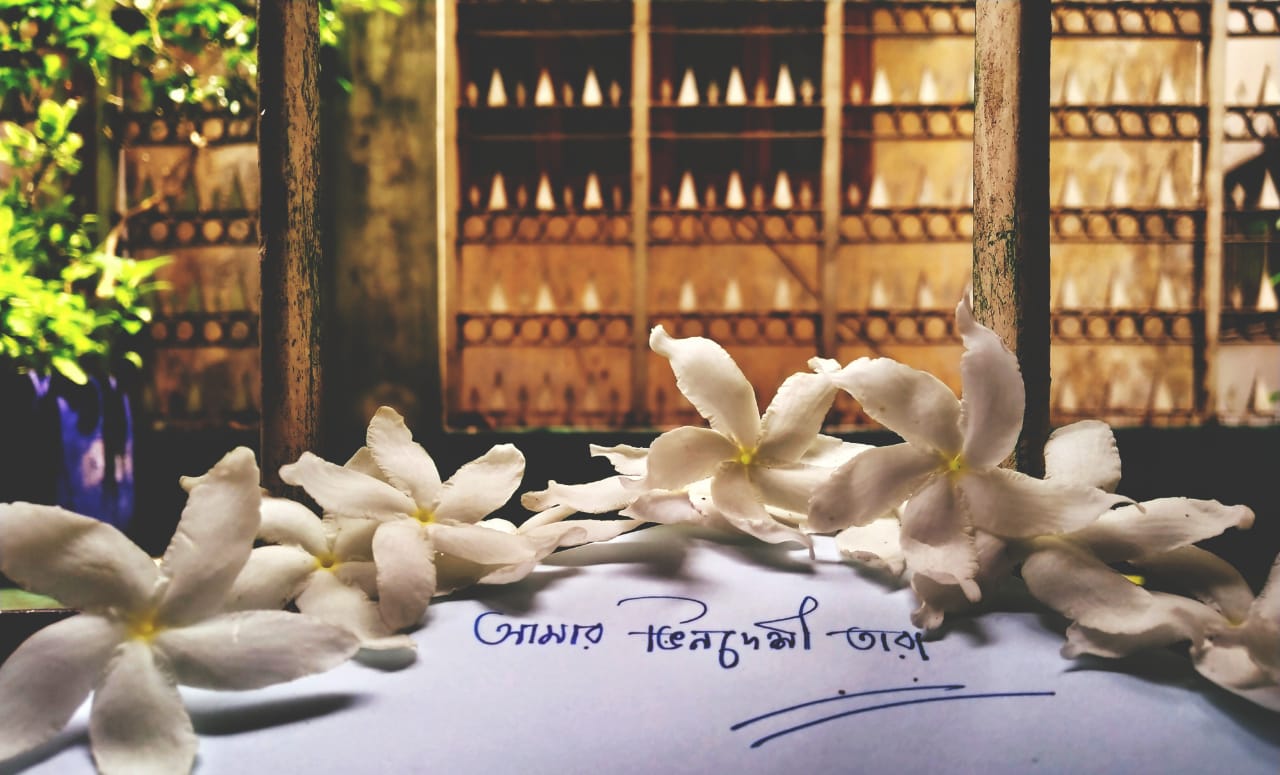 আমার ভিনদেশী তারা